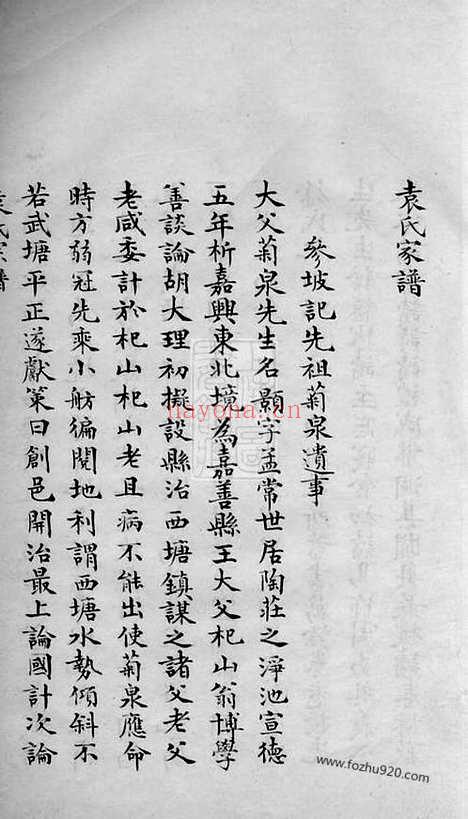 袁氏家譜
參坡記先祖菊泉遺事
大父菊泉先生名顥字孟常世居陶莊之淨池宣德
五年析嘉興東北境為嘉善縣王大父杞山翁博學
善談論胡大理初擬設縣治西塘鎮謀之諸父老父
老咸委計於杞山杞山老且病不能出使菊泉應命
時方弱冠先乘小舫徧閱地利謂西塘水勢傾斜不
若武塘平正遂獻策曰創邑開治最上論國計次論
氏家譜
hayona.cn
www.fozhu920.com